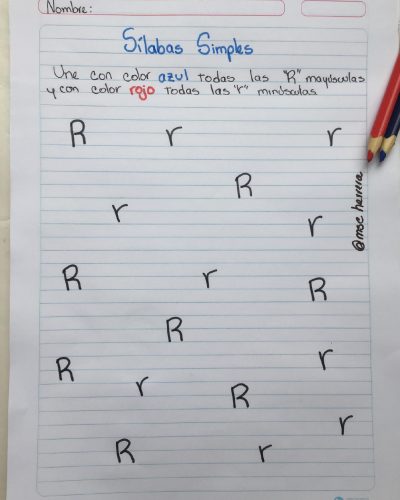 Nombre:
Sílabas Simples
Une con color azul todas las "R" mayúsculas
y con color rojo todas las "r" minúsculas.
R r r
R
r r
R r R
R
R r r
R
r
R r
@mse herrera